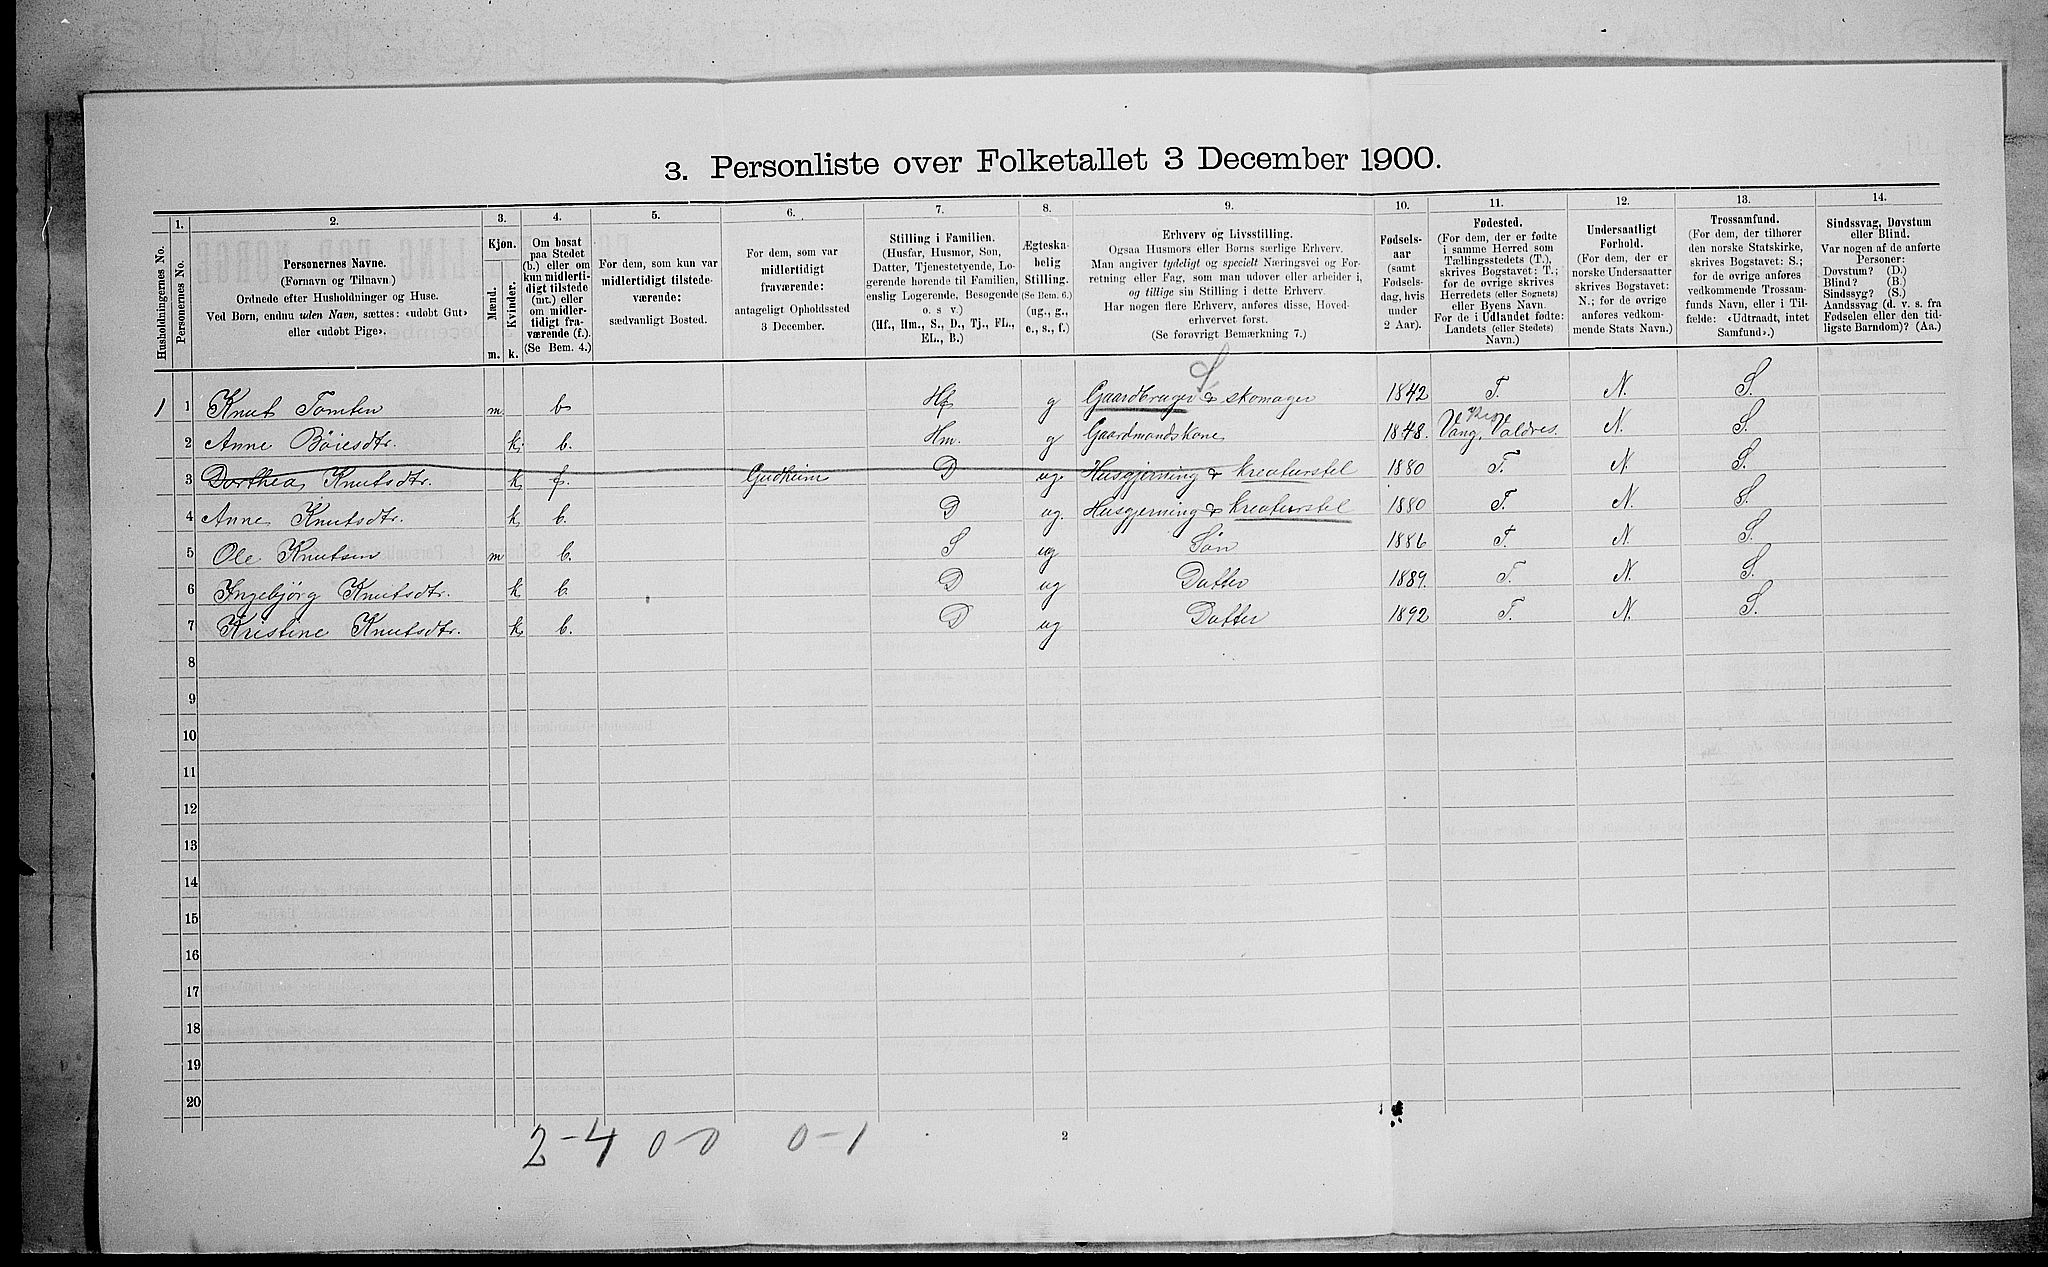 3. Personliste over Folketallet 3 December 1900.
1. 2. 3. 4. 5. 6. 7. 8. 9. 10. 11. 12. 13. 14.
Husholdningernes No.
Personernes No.
Personernes Navne.
(Fornavn og Tilnavn.)
Ordnede efter Husholdninger og Huse.
Ved Børn, endnu uden Navn, sættes: «udøbt Gut»
eller «udøbt Pige».
Kjøn.
Mænd.
Kvinder.
m. k.
Om bosat
paa Stedet
(b.) eller om
kun midler-
tidigt tilstede
(mt.) eller
om midler-
tidigt fra-
værende (f.).
(Se Bem. 4.)
For dem, som kun var
midlertidigt tilstede-
værende:
sædvanligt Bosted.
For dem, som var
midlertidigt
fraværende:
antageligt Opholdssted
3 December.
Stilling i Familien.
(Husfar, Husmor, Søn,
Datter, Tjenestetyende, Lo-
gerende hørende til Familien,
enslig Logerende, Besøgende
o. s v.)
(Hf., Hm., S., D., Tj., FL.,
EL., B.)
Ægteska-
belig
Stilling.
(Se Bem. 6.)
(ug., g.,
e., s., f.)
Erhverv og Livsstilling.
Ogsaa Husmors eller Børns særlige Erhverv.
Man angiver tydeligt og specielt Næringsvei og For-
retning eller Fag, som man udøver eller arbeider i,
og tillige sin Stilling i dette Erhverv.
Har nogen flere Erhverv, anføres disse, Hoved-
erhvervet først.
(Se forøvrigt Bemærkning 7.)
Fødsels-
aar
(samt
Fødsels-
dag, hvis
under
2 Aar).
Fødested.
(For dem, der er fødte
i samme Herred som
Tællingsstedets (T.),
skrives Bogstavet: T.;
for de øvrige skrives
Herredets (eller Sognets)
eller Byens Navn.
For de i Udlandet fødte:
Landets (eller Stedets)
Navn.)
Undersaatligt
Forhold.
(For dem, der er
norske Undersaatter
skrives Bogstavet:
N.; for de øvrige
anføres vedkom-
mende Stats Navn.)
Trossamfund.
(For dem, der tilhører
den norske Statskirke,
skrives Bogstavet: S.;
for de øvrige anføres
vedkommende Trossam-
funds Navn, eller i Til-
fælde: «Udtraadt, intet
Samfund».)
Sindssvag, Døvstum
eller Blind.
Var nogen af de anførte
Personer:
Døvstum? (D.)
Blind? (B.)
Sindssyg? (S.)
Aandssvag (d. v. s. fra
Fødselen eller den tid-
ligste Barndom)? (Aa.)
S
1 1 Knut Tomten m b Hf g Gaardbruger & skomager 1842 T. N. S.
2 Anne Bøiesdtr. k. b. Hm. g Gaardmandskone 1848. Vang, Valdres. N. S.
3 Dorthea Knutsdtr. k f. Gudheim D ug Husgjerning & kreaturstel 1880 T. N. S.
4 Anne Knutsdtr. k b. D ug. Husgjerning & kreaturstel 1880 T. N. S.
5 Ole Knutsen m b. S ug Søn 1886 T. N. S.
6 Ingebjørg Knutsdtr. k b. D ug Datter 1889. T. N. S.
7 Kristine Knutsdtr. k b. D ug Datter 1892 T. N. S.
8
9
10
11
12
13
14
15
16
17
18
19
20
2-4 0-0 0-1
2